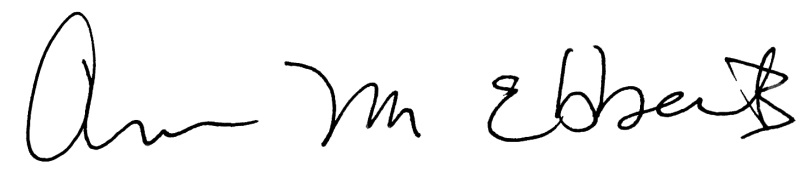 Ann M Ebberts